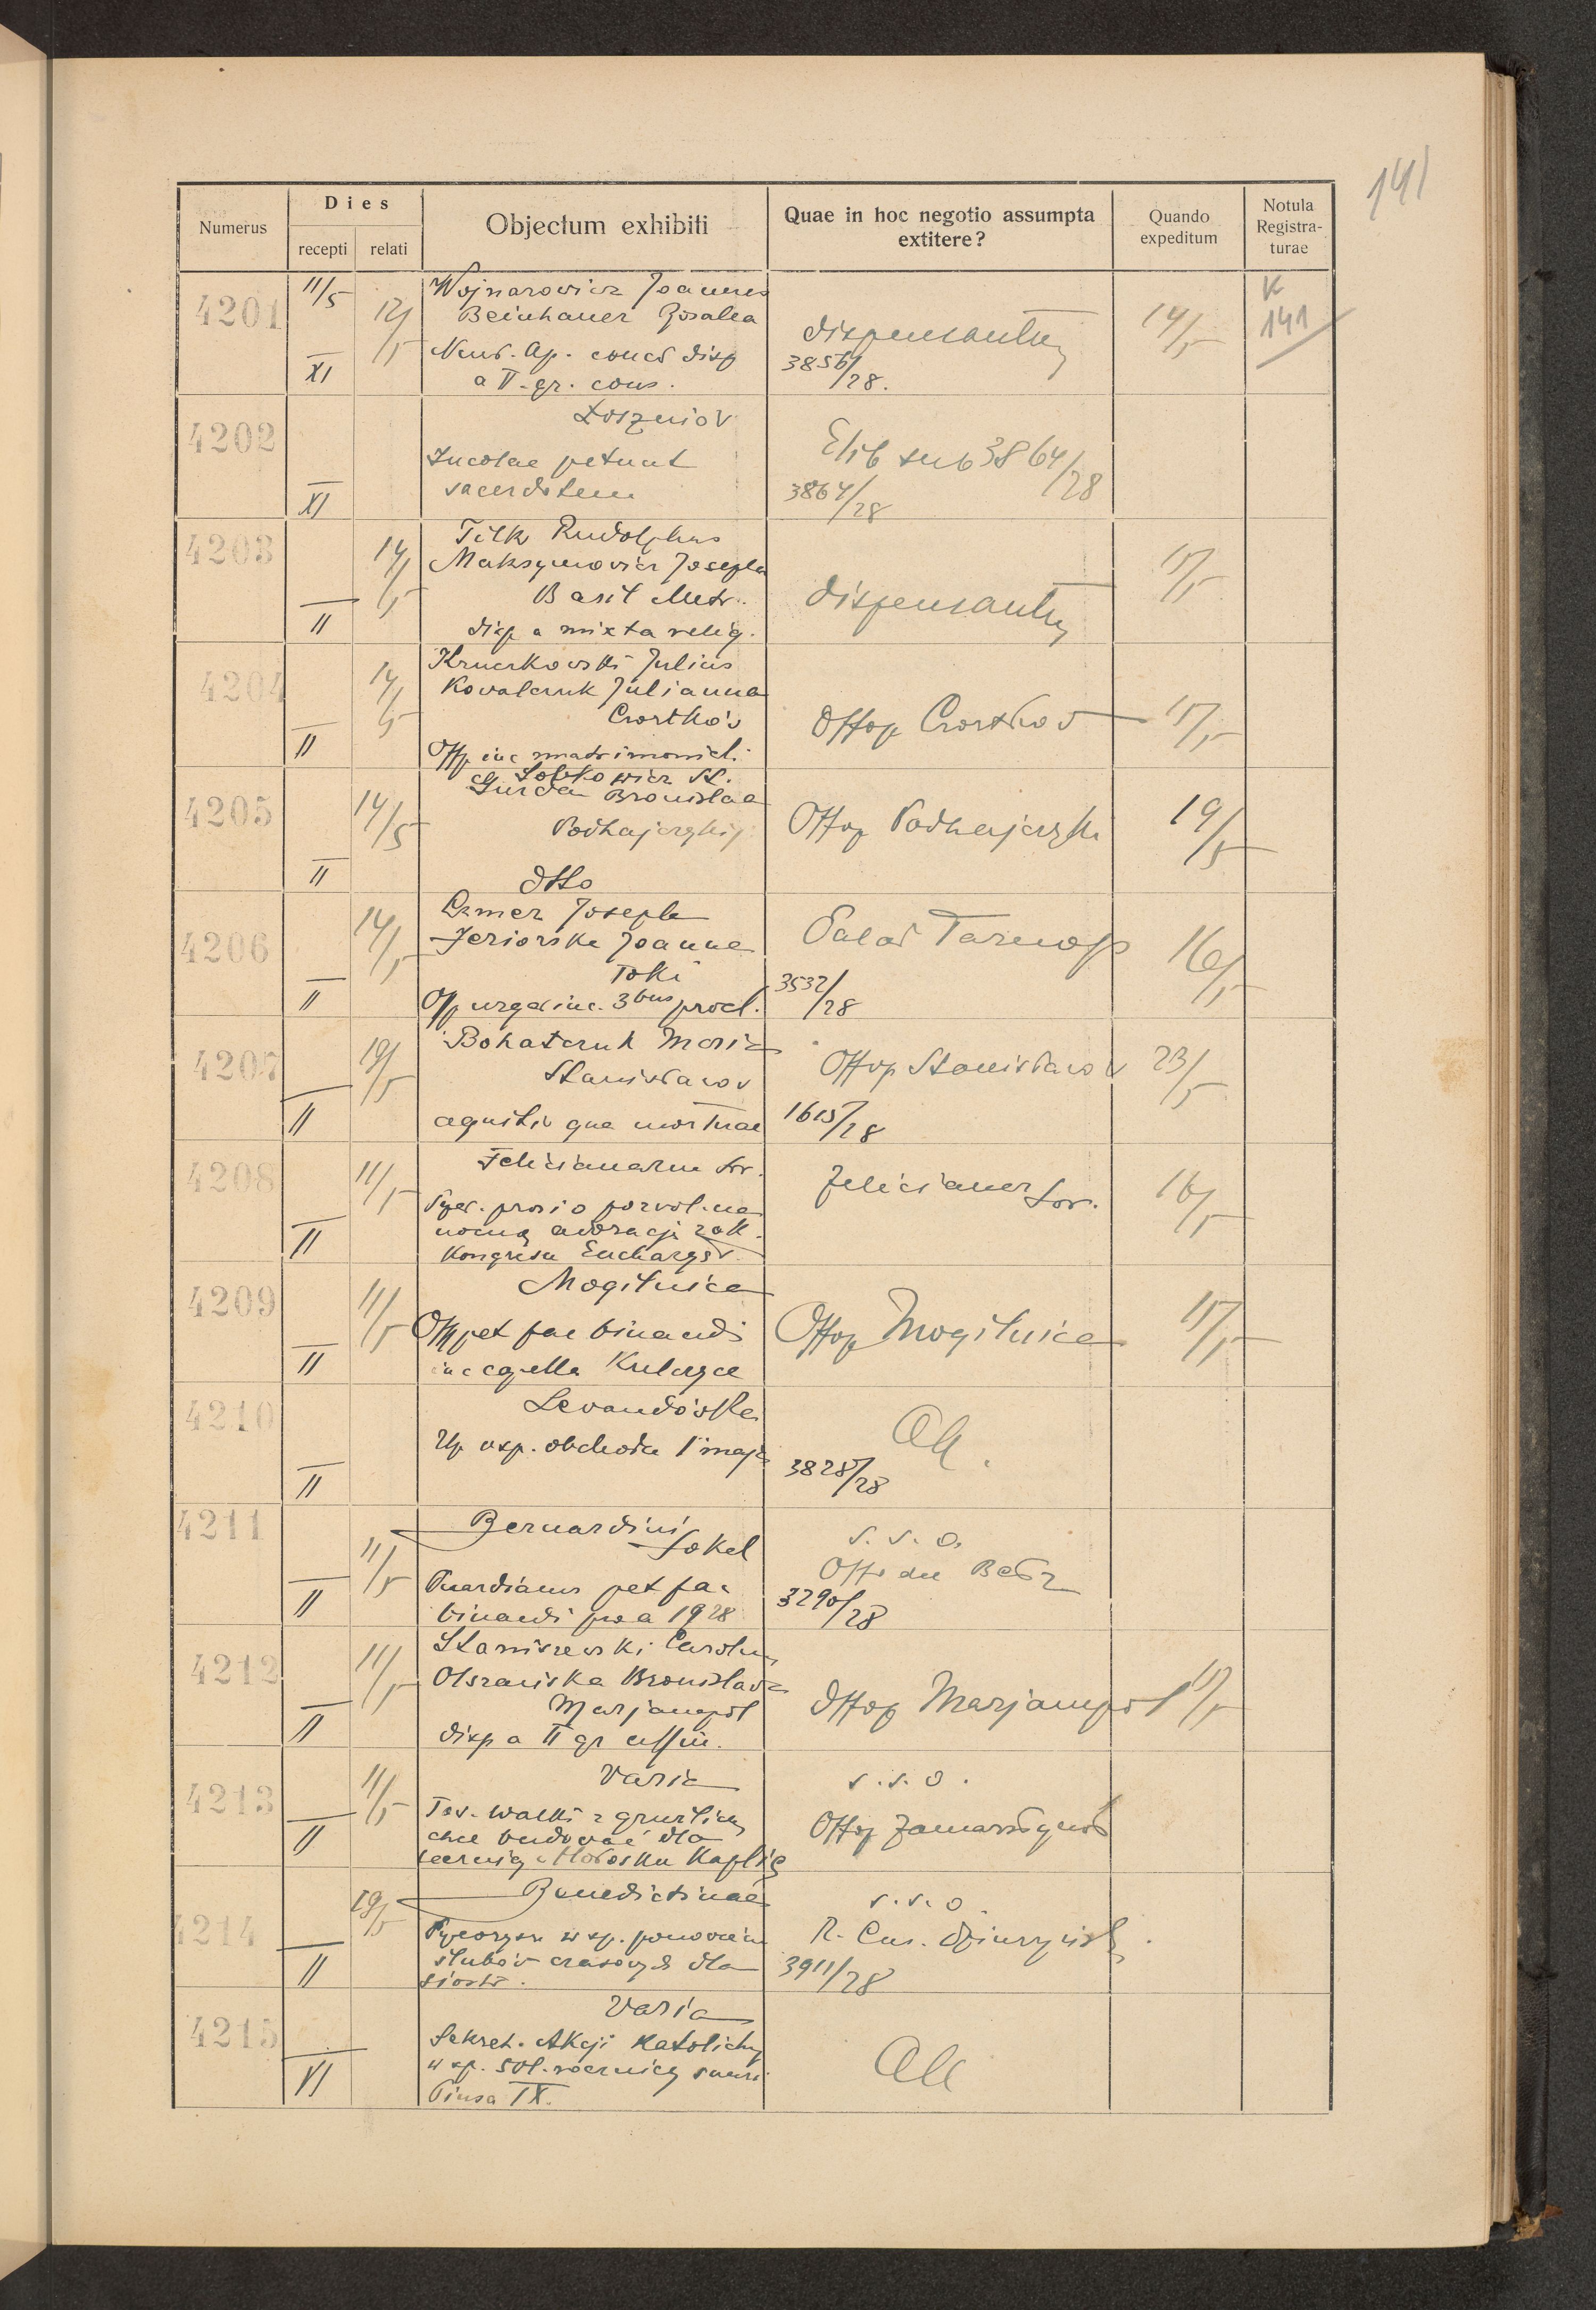 141
Numerus
Dies
recepti
relati
Objectum exhibiti
Quae in hoc negotio assumpta
extitere?
Quando
expeditum
Notula
Registra-
turae
4201
11/5
XI
12/5
Wojnarowicz Joannes
Beinhauer Rosalia
Nunt. Ap. conced disp
a II. gr. cons.
dispensantur
3856/28.
14/5
K
141
4202
XI
Łoszniov
Incolae petunt
sacerdotem
Elib sub 3864/28
3864/28
4203
II
14/5
Tilk Rudolphus
Maksymovicz Josepha
Basil Metr.
disp a mixta relig.
dispensantur
15/5
4204
II
14/5
Kruczkowski Julius
Kovalczuk Julianna
Czortków
Offp in c matrimonial.
Offop Czortkov
15/5
4205
II
14/5
Sobkowicz St.
Gurda Bronislaa
Podhajczyki
dtto
Offop Podhajczyki
19/5
4206
II
14/5
Josepha
Jeziorska Joanna
Toki
Offp urget in c. 3bus procl.
Tarnop
3532/28
16/5
4207
II
19/5
Bohatczuk Maria
Stanisłavov
agnitio qua mortuae
Offop Stanisłavov
1615/28
23/5
4208
II
11/5
Felicianarum Sor.
prosi o pozvol. na
nocną adoracji zak.
Kongresu Eucharyst.
Felicianer Sor.
16/5
4209
II
11/5
Mogilnica
Offp pet fac binandi
in c capella
Offop Mogilnica
15/5
4210
II
Levandóvka
Up vsp. obchodu 1 maja
3828/28
4211
II
11/5
Bernardini
Sokal
Guardianus pet fac
binandi pro a 1928
s. s. o.
Bełz
3290/28
4212
II
11/5
Staniszewski Carolus
Olszańska Bronislava
Marjampol
disp a II gr affin.
Offop Marjampol
15/5
4213
II
11/5
Varia
Tov. walki z gruźlicą
chce budovać dla
Hołosku Kaplicę
s. s. o.
Offop Zamarstynov
4214
II
19/5
Benedictinae
w sp. ponovien
ślubóv czasovych dla
siostr.
s. s. o.
R. Can. Dziurzyński
3911/28
4215
VI
Varia
Sekret. Akcji Katolickiej
w sp. 50l. rocznicy śmierci
Piusa IX.